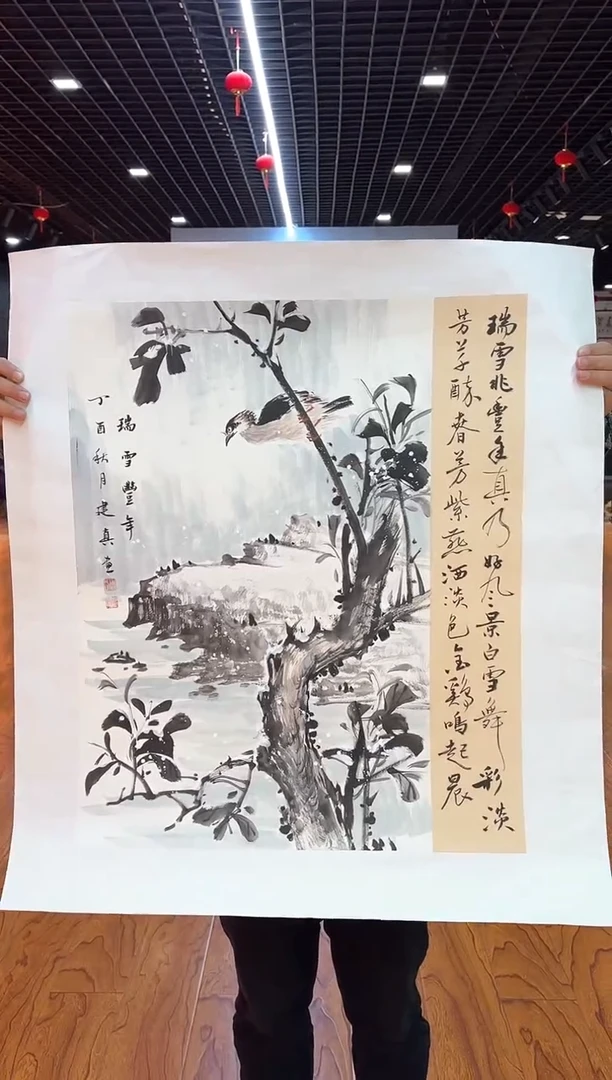 瑞雪兆豐年真乃好風景白雪舞彩淡
芳草酥春芳紫燕洒淡色金鷄鳴起晨
瑞雪豐年
丁酉秋月建真畫